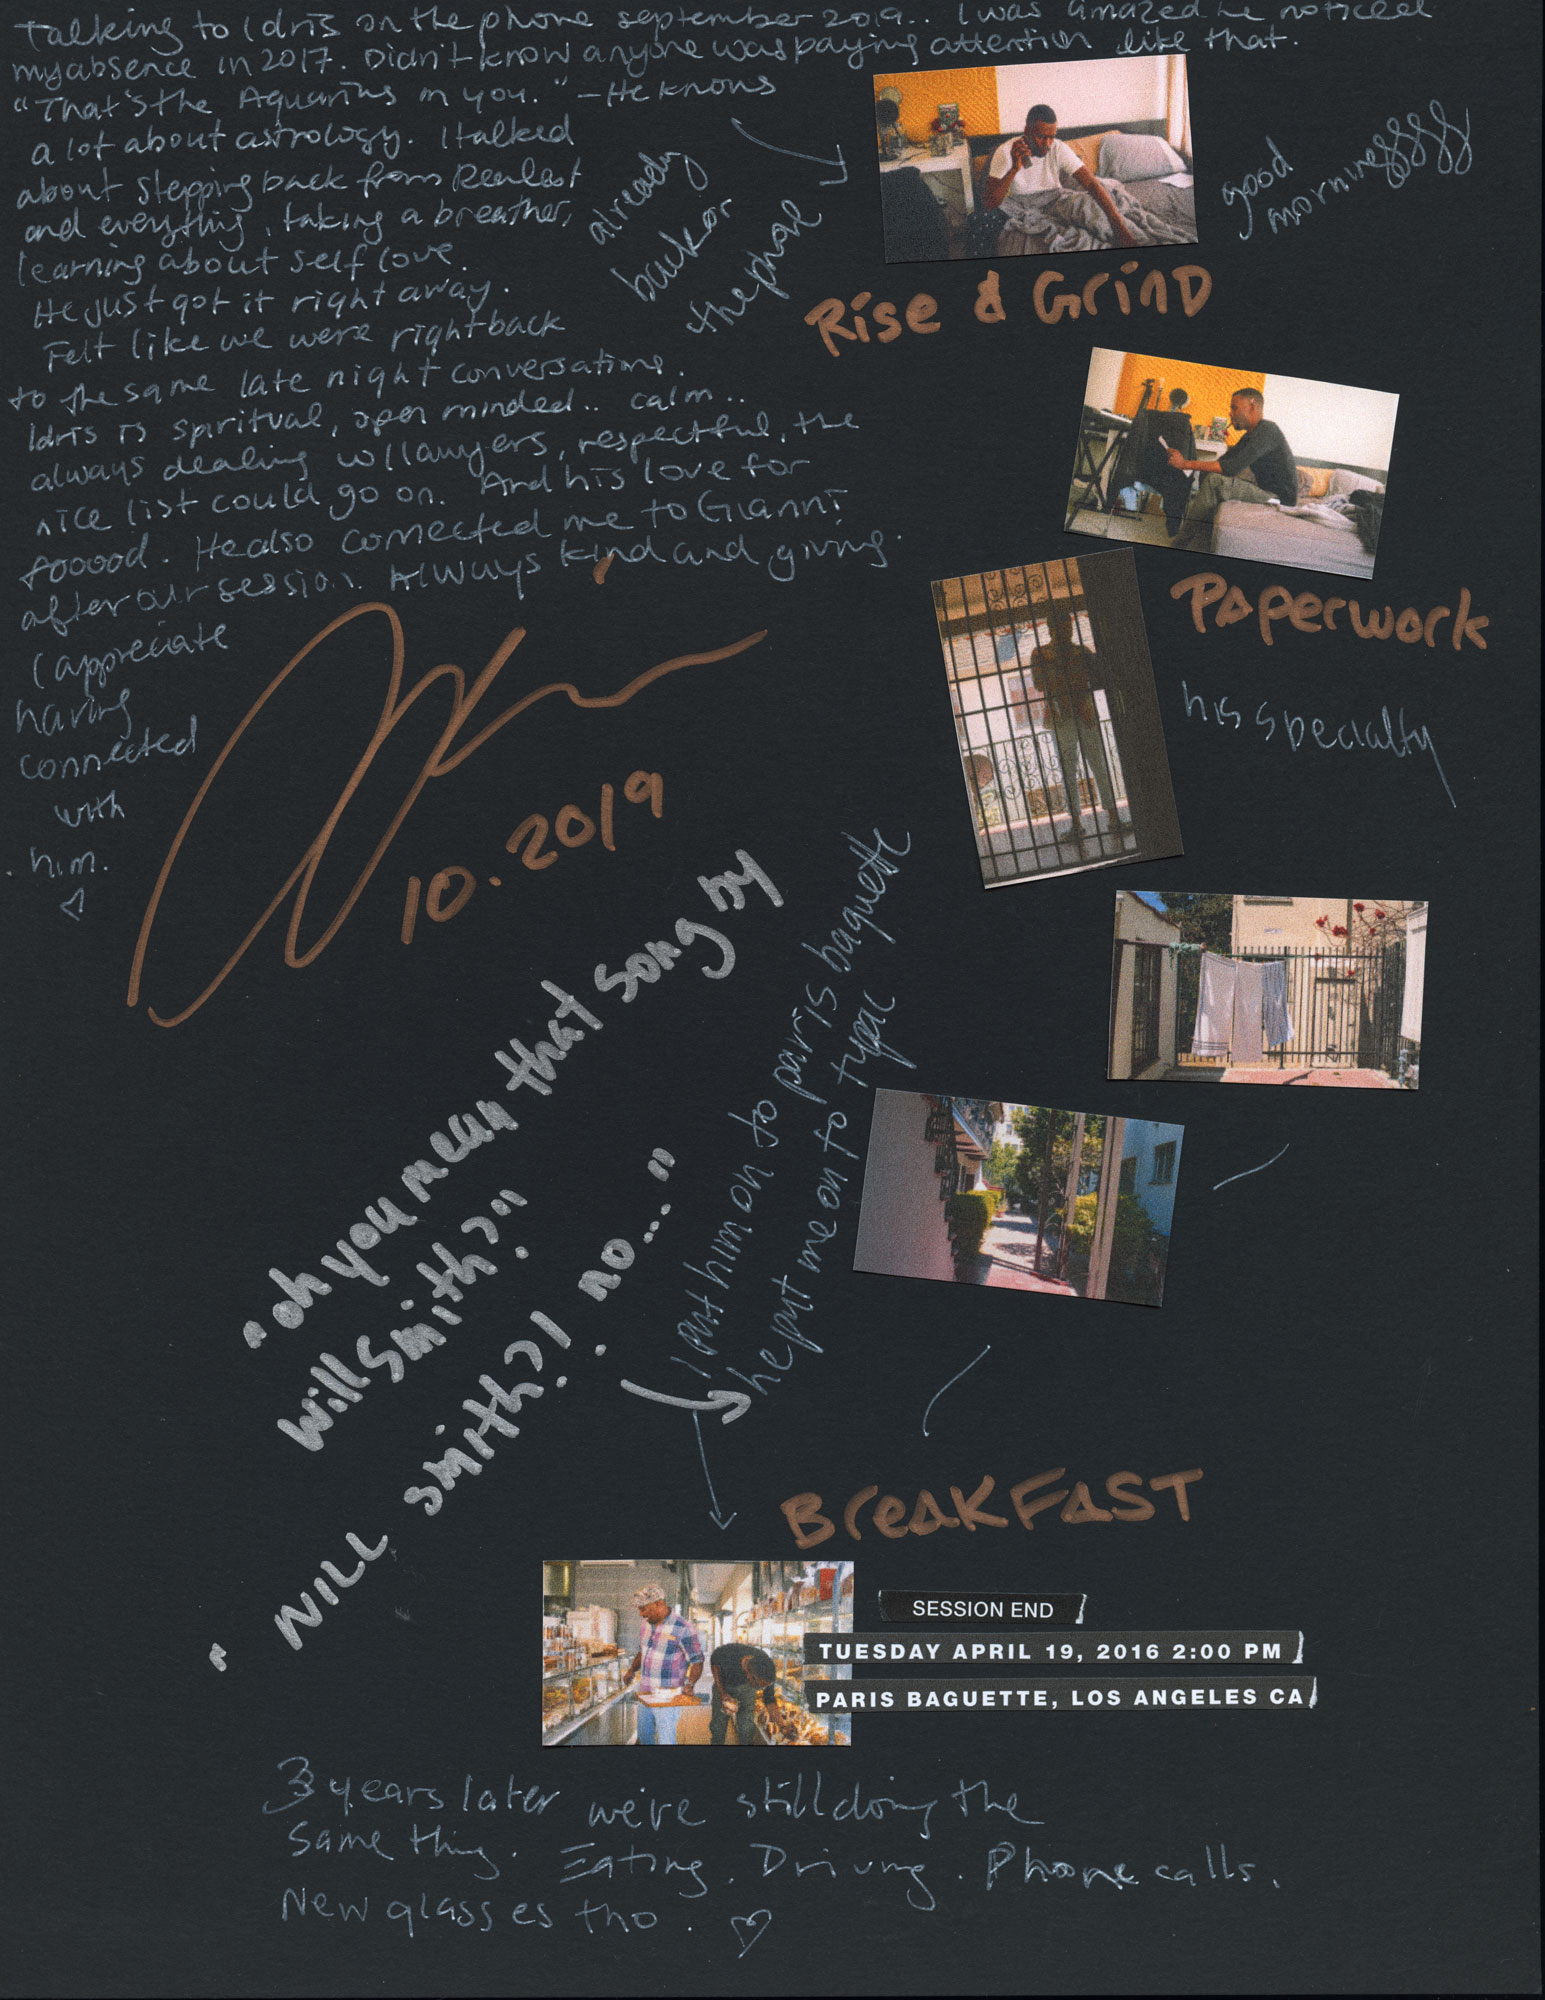 Talking to Idris on the phone september 2019.. I was amazed he noticed
my absence in 2017. Didn't know anyone was paying attention like that.
"That's the Aquarius in you." - He knows
a lot about astrology. I talked
about stepping back from Realest
and everything, taking a breather,
learning about self love.
He just got it right away.
Felt like we were right back
to the same late night conversations.
Idris is spiritual, open minded.. calm..
always dealing w/ lawyers, respectful, the
nice list could go on. And his love for
fooood. He also connected me to Gianni
after our session. Always kind and giving.
I appreciate
having
connected
with
him.
10.2019
already
back on
the phone
good
morningssss
Rise & Grind
Paperwork
his specialty
"oh you mean that song by
Will Smith?"
"WILL smith?! no..."
I put him on to paris baguette
he put me on to
BreakFAST
SESSION END
TUESDAY APRIL 19, 2016 2:00 PM
PARIS BAGUETTE, LOS ANGELES CA
3 years later we're still doing the
same thing. Eating. Driving. Phone calls.
New glasses tho.